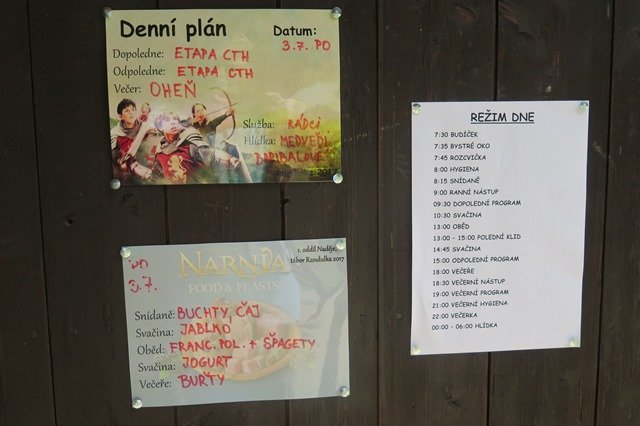 Denní plán
Datum:
3.7. PO
Dopoledne: ETAPA CTH
Odpoledne: ETAPA CTH
Večer: OHEŇ
Služba: RÁDCI
Hlídka: MEDVĚDI
BARIBALOVÉ
NARNIA
FOOD & FEASTS
1. oddíl Naděje,
tábor Randulka 2017
3.7.
Snídaně: BUCHTY, ČAJ
Svačina: JABLKO
Oběd: FRANC. POL. + ŠPAGETY
Svačina: JOGURT
Večeře: BUŘTY
REŽIM DNE
7:30 BUDÍČEK
7:35 BYSTRÉ OKO
7:45 ROZCVIČKA
8:00 HYGIENA
8:15 SNÍDANĚ
9:00 RANNÍ NÁSTUP
09:30 DOPOLEDNÍ PROGRAM
10:30 SVAČINA
13:00 OBĚD
13:00 - 15:00 POLEDNÍ KLID
14:45 SVAČINA
15:00 ODPOLEDNÍ PROGRAM
18:00 VEČEŘE
18:30 VEČERNÍ NÁSTUP
19:00 VEČERNÍ PROGRAM
21:00 VEČERNÍ HYGIENA
22:00 VEČERKA
00:00 - 06:00 HLÍDKA